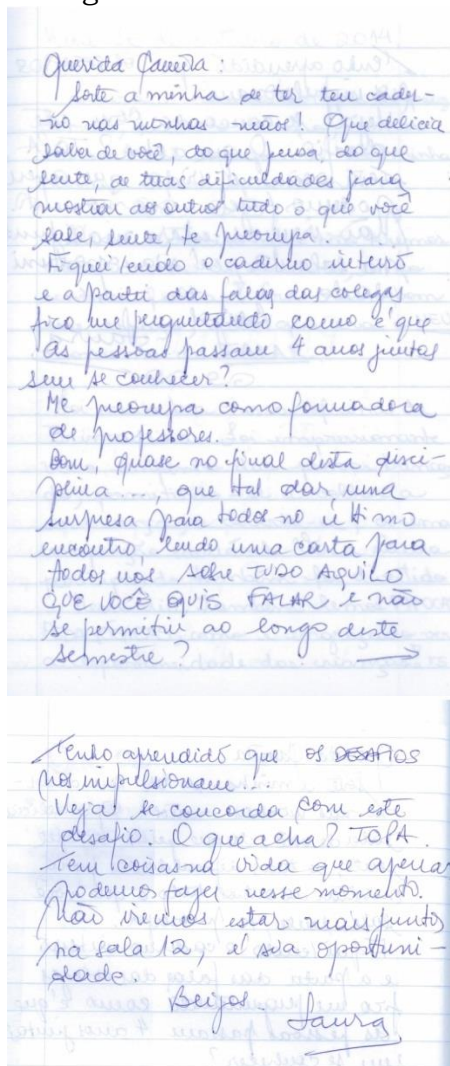 Querida Camila:
Sorte a minha de ter teu cader-
-no nas minhas mãos! Que delícia
saber de você, do que pensa, do que
sente, de tuas dificuldades para
mostrar aos outros tudo o que você
sabe, sente, te preocupa.
Fiquei lendo o caderno inteiro
e a partir das falas das colegas
fico me perguntando como é que
as pessoas passam 4 anos juntas
sem se conhecer?
Me preocupa como formadora
de professores.
Bom, quase no final desta disci-
plina..., que tal dar uma
surpresa para todos no último
encontro, lendo uma carta para
todos nós sobre TUDO AQUILO
QUE VOCÊ QUIS FALAR e não
se permitiu ao longo deste
semestre?
Tenho aprendido que os DESAFIOS
nos impulsionam...
Veja se concorda com este
desafio. O que acha? TOPA.
Tem coisas na vida que apenas
podemos fazer nesse momento.
Não iremos estar mais juntos
na sala 12, é sua oportuni-
dade.
Beijos. Laura